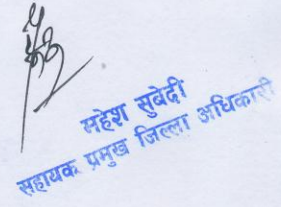 महेश सुबेदी
सहायक प्रमुख जिल्ला अधिकारी